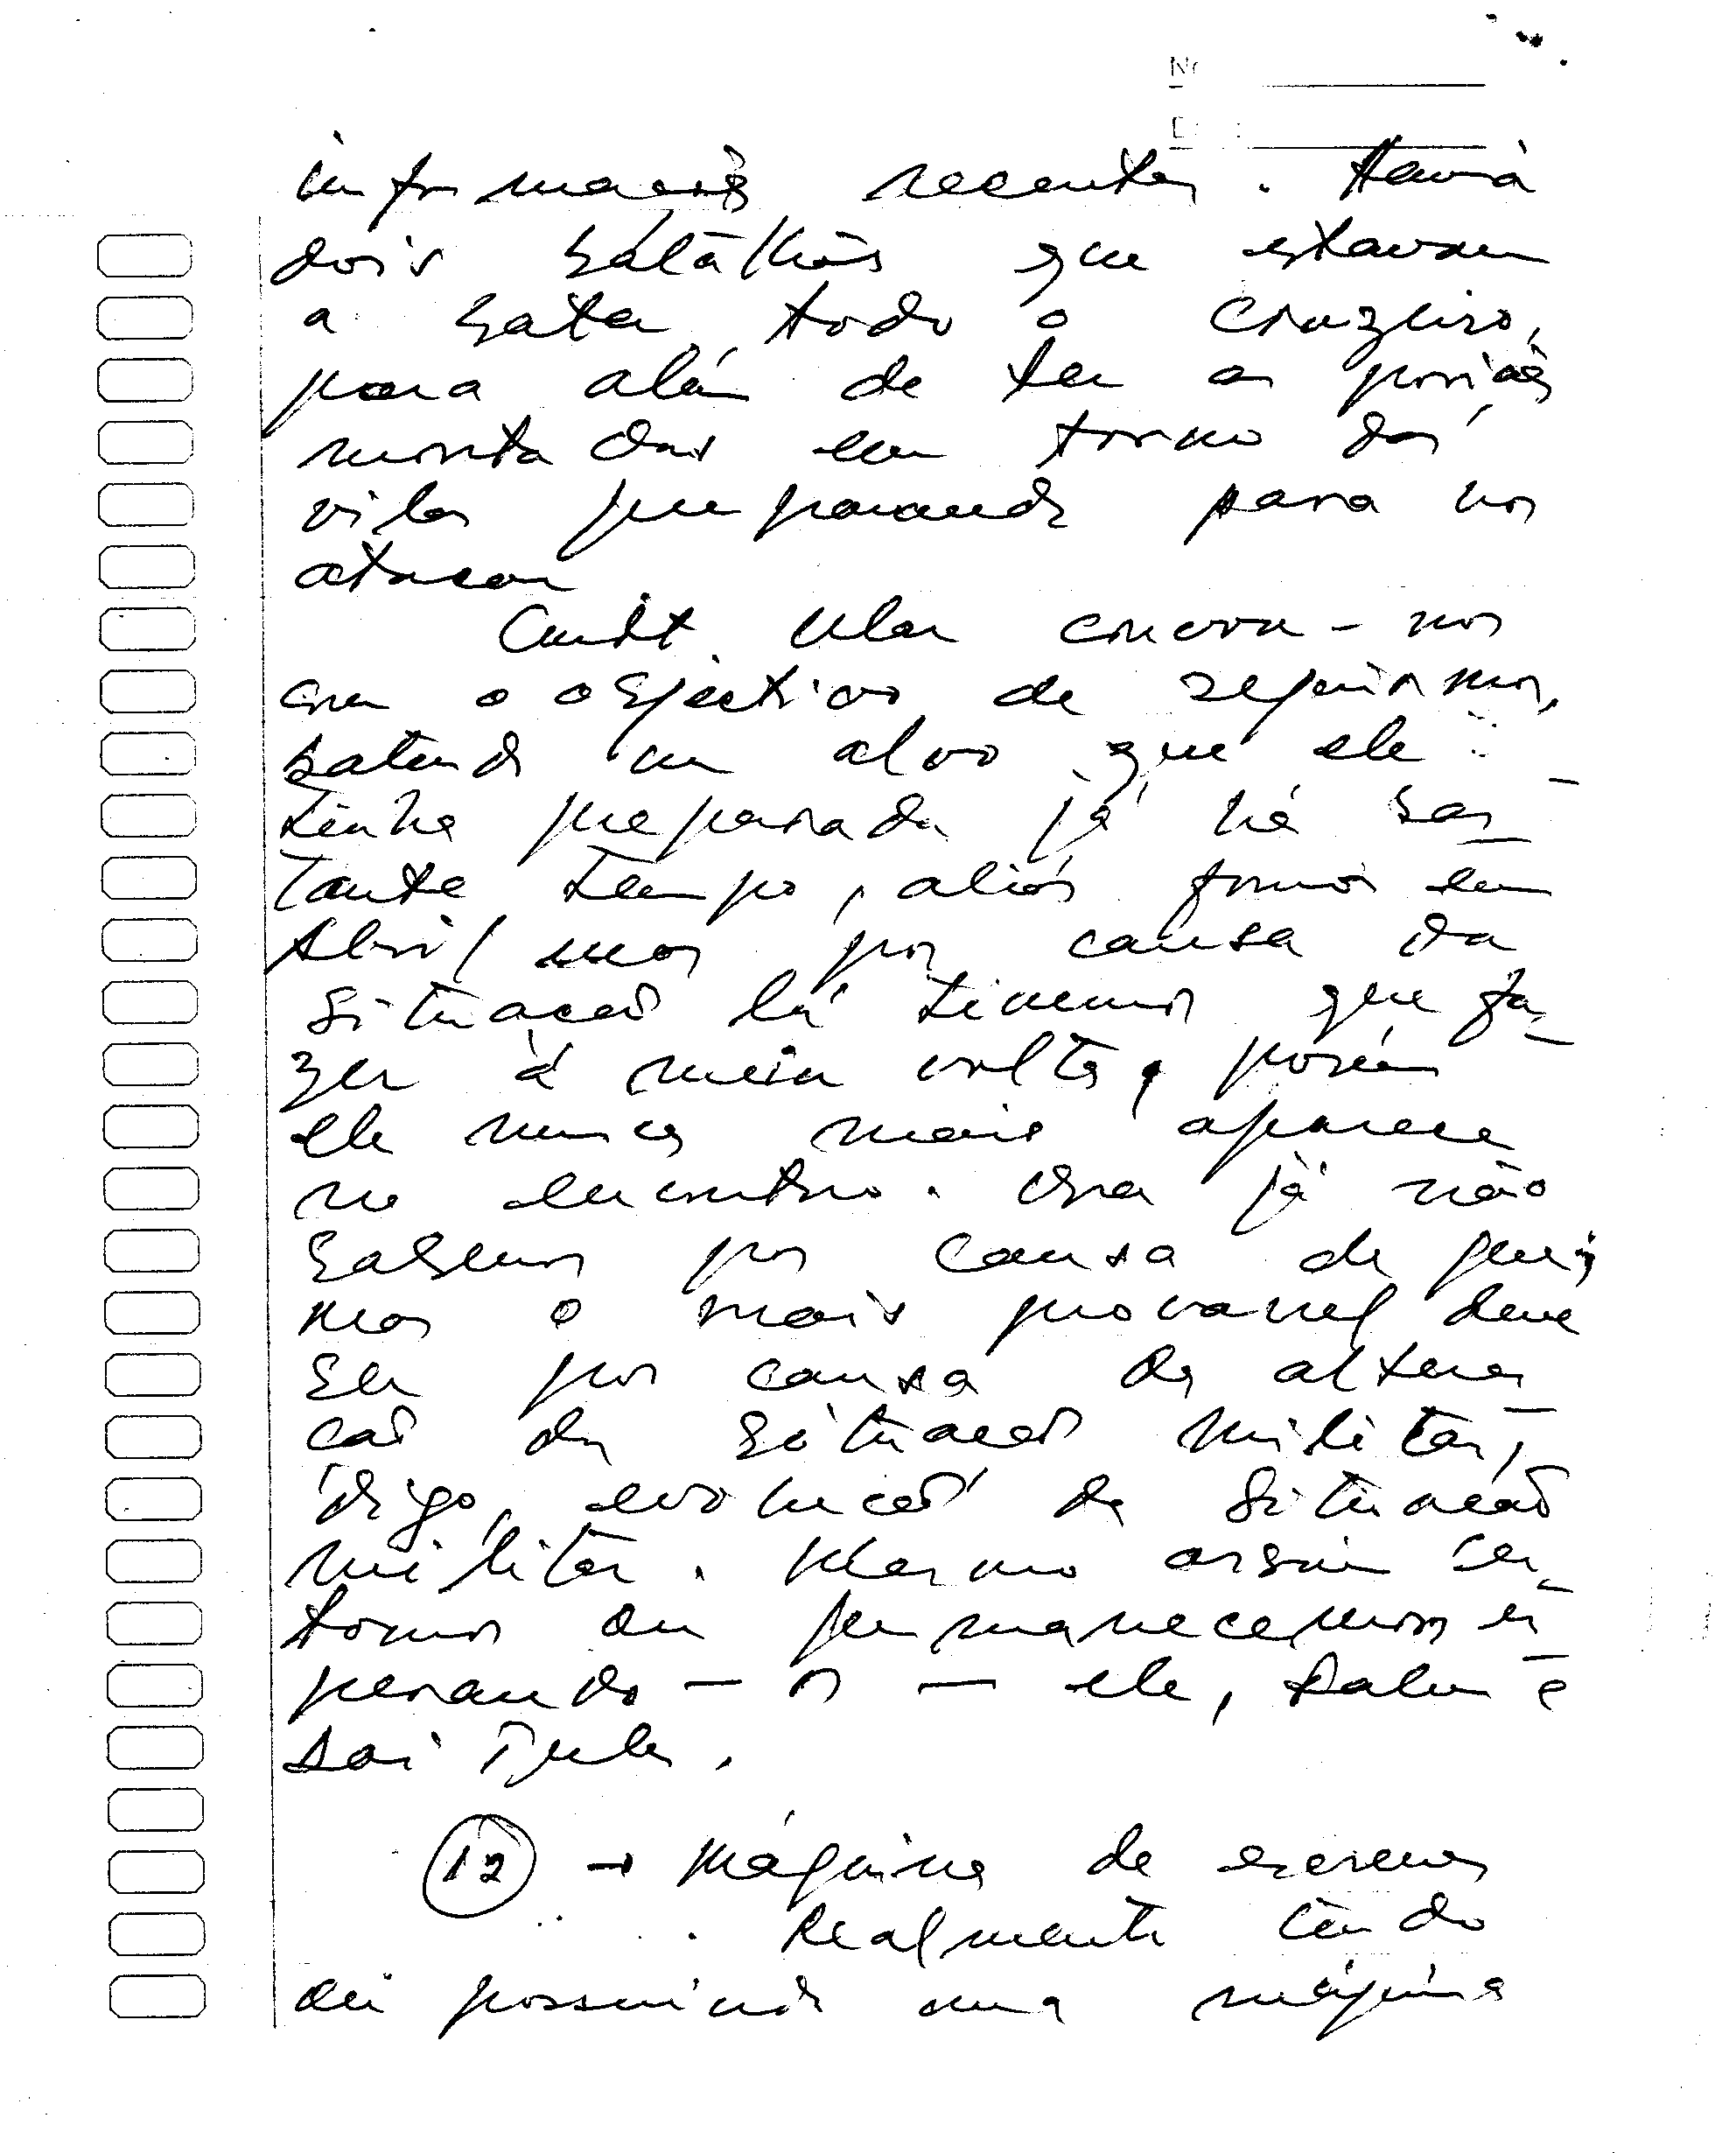 No
informações recentes. Havia
dois batalhões que estavam
a bater todo o cruzeiro,
para além de ter as posições
montadas em torno das
vilas preparando para nos
atacar.
Cmdt Mau convoca-nos
com o objectivo de seguirmos,
batendo um alvo que ele
tinha preparado já há bas-
tante tempo, aliás fomos em
Abril mas por causa da
situação lá tivemos que fa-
zer a meia volta, porém
ele nunca mais aparece
no encontro. Ora já não
sabemos por causa de que;
mas o mais provavel deve
ser por causa da altera-
ção da situação militar,
digo, evolução da situação
militar. Mesmo assim es-
tamos ou permanecemos es-
perando - os - ele, Falur e
Sai Tula.
12 → Máquina de escrever
Realmente tendo
ou possuindo uma máquina